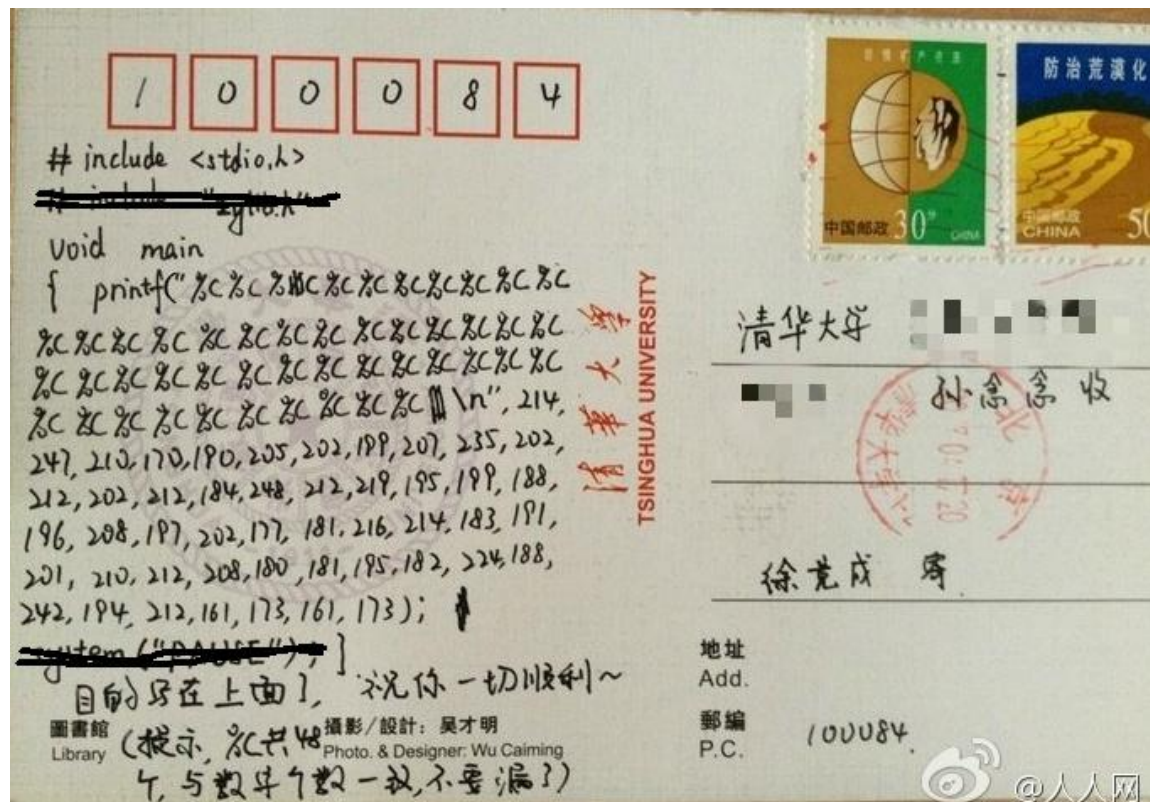 1 0 0 0 8 4
#include <stdio.h>
void main
{ printf("%C %C %C %C %C %C %C %C %C %C
%C %C %C %C %C %C %C %C %C %C %C %C %C
%C %C %C %C %C %C %C %C %C %C %C %C %C
%C %C %C %C %C %C %C %C %C %C %C %C \n", 214,
247, 210, 170, 190, 205, 202, 199, 207, 235, 202,
212, 202, 212, 184, 248, 212, 219, 195, 199, 188,
196, 208, 197, 202, 177, 181, 216, 214, 183, 191,
201, 210, 212, 208, 180, 181, 195, 182, 224, 188,
242, 194, 212, 161, 173, 161, 173);
system("PAUSE"); }
目的写在上面了, 祝你一切顺利~
(提示, %C共48
个, 与数字个数一致, 不要漏了)
圖書館
Library
攝影/設計: 吴才明
Photo. & Designer: Wu Caiming
清華大學
TSINGHUA UNIVERSITY
中国邮政 30分 CHINA
防治荒漠化
中国邮政
CHINA
50
清华大学
孙念念 收
徐晃成 寄
地址
Add.
郵編
P.C.
100084.
@人人网